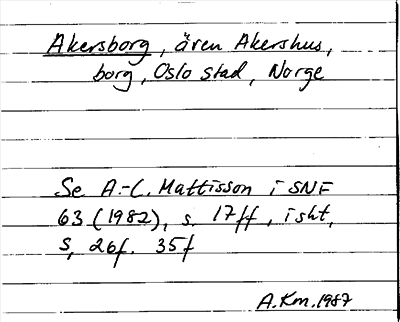 Akersborg, ären Akershus,
borg, Oslo stad, Norge
Se A.-C. Mattisson i SNF
63 (1982), s. 17ff, i sht,
s, 26f. 35f
A.Km.1987